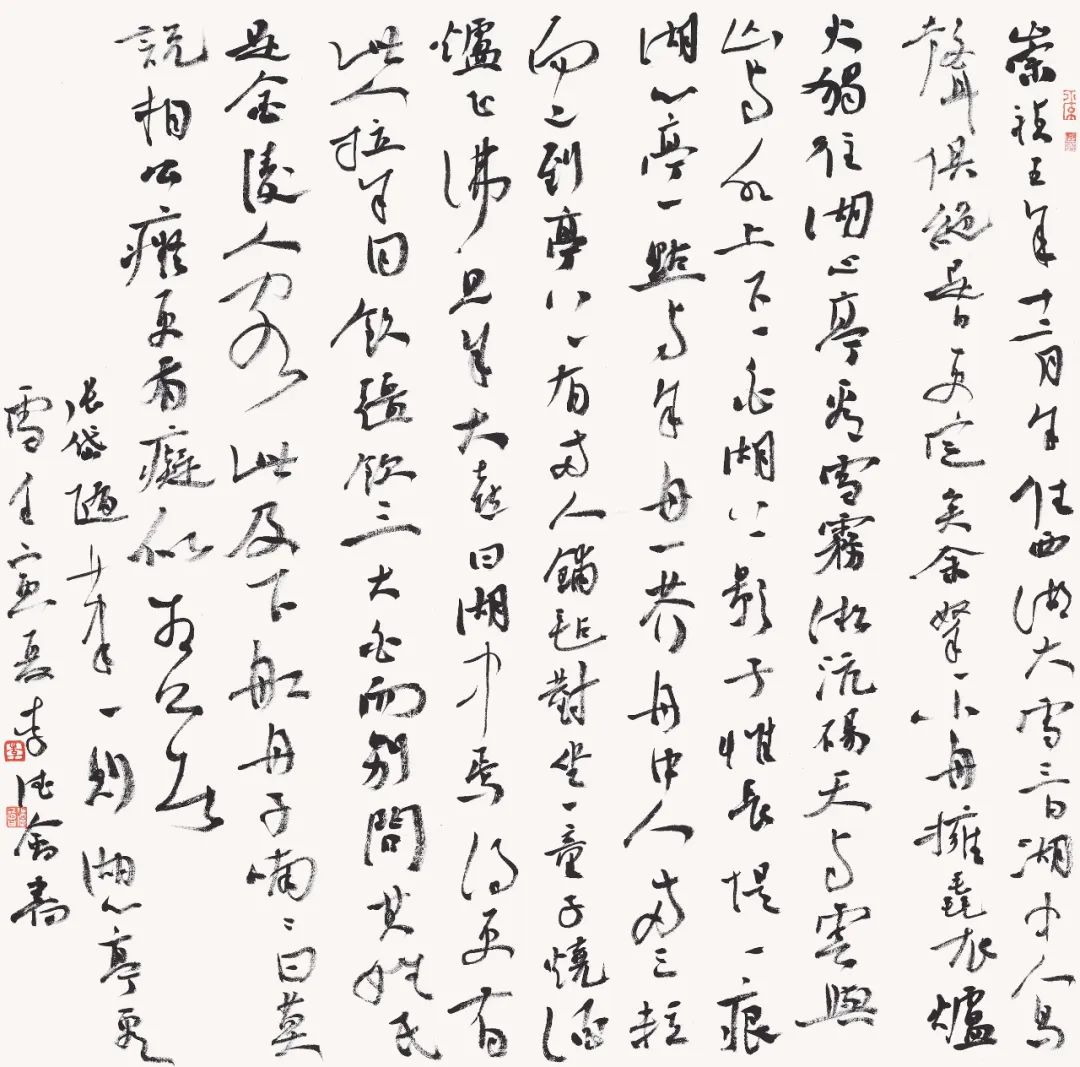 崇禎五年十二月余住西湖大雪三日湖中人鳥
聲俱絕是日更定矣余拏一小舟擁毳衣爐
火獨往湖心亭看雪霧淞沆碭天與雲與
山與水上下一白湖上影子惟長堤一痕
湖心亭一點與余舟一芥舟中人兩三粒
而已到亭上有兩人鋪氈對坐一童子燒酒
爐正沸見余大喜曰湖中焉得更有
此人拉余同飲強飲三大白而別問其姓氏
是金陵人客此及下船舟子喃喃曰莫
說相公癡更有癡似相公者
張岱隨筆一則湖心亭看
雪壬寅夏李德書